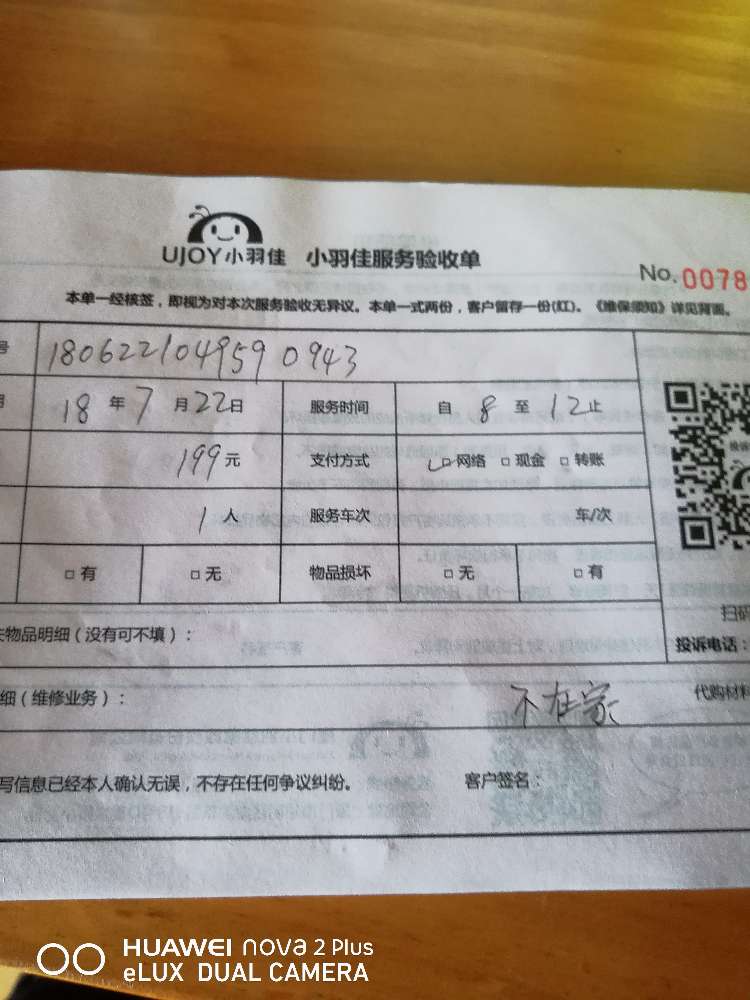 UJOY小羽佳 小羽佳服务验收单
No.0078
本单一经核签，即视为对本次服务验收无异议。本单一式两份，客户留存一份(红)。《维保须知》详见背面。
号 180622104959 0943
18年7月22日 服务时间 自8至12止
199元 支付方式 ☑网络 □现金 □转账
1人 服务车次 车/次
□有 □无 物品损坏 □无 □有
扫码
物品明细（没有可不填）：
投诉电话：
细（维修业务）：
不在家
代购材料
写信息已经本人确认无误，不存在任何争议纠纷。 客户签名：
HUAWEI nova 2 Plus
eLUX DUAL CAMERA